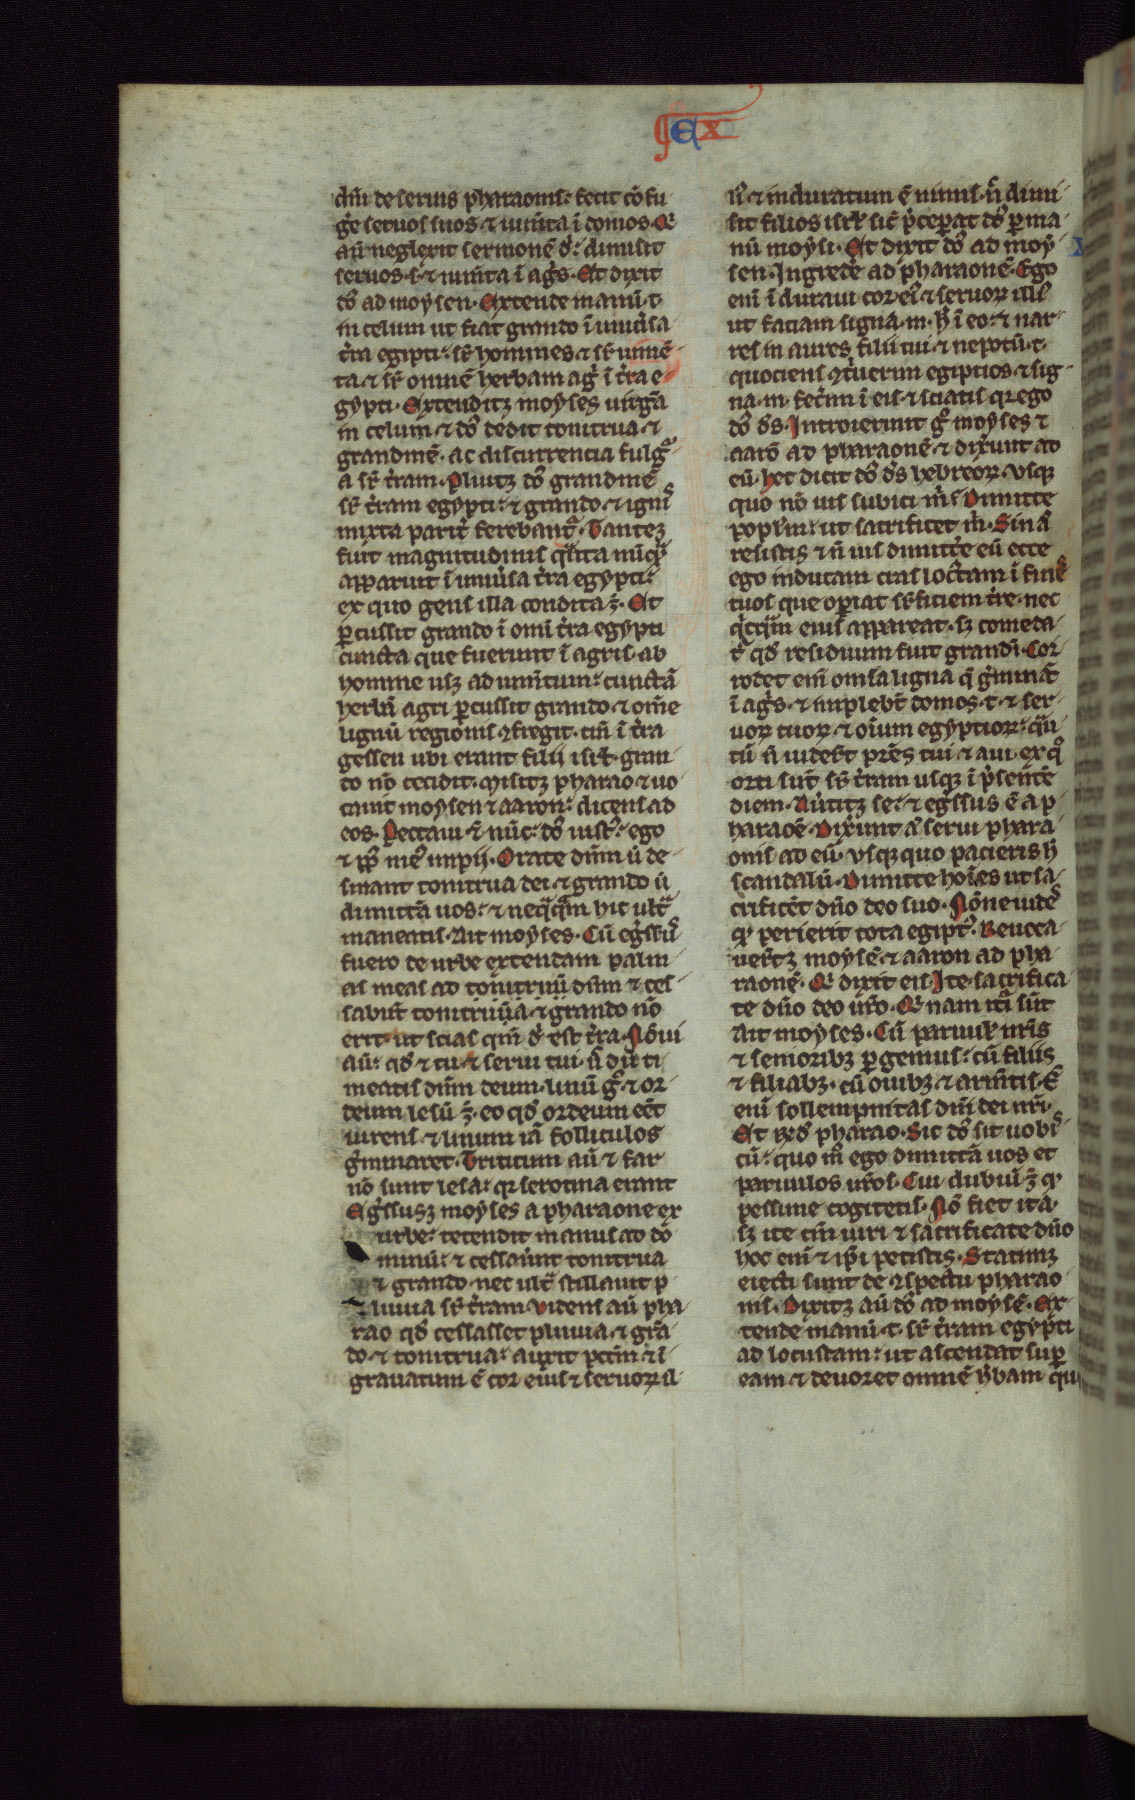 ex
dn̄i de seruis pharaonis: fecit ꝯ̄fu-
ge seruos suos ⁊ ium̄ta ī domos. Qͥ
aū neglexit sermonē dī: dimisit
seruos .s. ⁊ ium̄ta ī agͥs. Et dixit
dn̄s ad moysen. Extende manū .t.
in celum ut fiat grando ī uniu̾sa
t̾ra egipti: sr̄ homines ⁊ sr̄ iumē-
ta ⁊ sr̄ omnē herbam agͥ ī t̾ra e-
gypti. Extenditqꝫ moyses uirgā
in celum ⁊ dn̄s dedit tonitrua ⁊
grandinē. ac discurrencia fulgͣ-
a sr̄ t̾ram. Pluitqꝫ dn̄s grandinē
sr̄ t̾ram egypti: ⁊ grando ⁊ ignis
mixta parit̾ ferebant̾. Tanteqꝫ
fuit magnitudinis qͣnta nūqͣ
apparuit ī uniu̾sa t̾ra egypti:
ex quo gens illa condita ē. Et
ꝑcussit grando ī omi t̾ra egypti
cuncta que fuerunt ī agris. ab
homine usqꝫ ad ium̄tum: cunctā
herbā agri ꝑcussit grando ⁊ om̄e
lignū regionis ꝯfregit. tm̄ ī t̾ra
gessen ubi erant filii isrl̄. gran-
do nō cecidit. Misitqꝫ pharao ⁊ uo-
cauit moysen ⁊ aaron: dicens ad
eos. Peccaui ⁊ nūc: dn̄s iust̾: ego
⁊ ppl̄s me̾ impii. Orate dn̄m ū de-
sinant tonitrua dei ⁊ grando ū
dimittā uos: ⁊ neqͣqͣm hic ultͣ
maneatis. Ait moyses. Cū egr̄ssus
fuero de urbe extendam palm-
as meas ad dn̄m ⁊ ces-
sabūt tonitrua ⁊ grando nō
erit. ut scias qm̄ dn̄i est t̾ra. Noui
aū: qd̄ ⁊ tu ⁊ serui tui. n̄ dū ti-
meatis dn̄m deum. Linū gͦ ⁊ or-
deum lesū ē. eo qd̄ ordeum eēt
uirens ⁊ linum iā folliculos
gͥminaret. Triticum aū ⁊ far
nō sunt lesa: qꝛ serotina erant
Egr̄ssusqꝫ moyses a pharaone ex
urbe: tetendit manus ad do-
minū: ⁊ cessaūunt tonitrua
⁊ grando. nec ultͣ stillauit p-
luuia sr̄ t̾ram. Uidens aū pha-
rao qd̄ cessasset pluuia ⁊ grā-
do ⁊ tonitrua: auxit pctm̄ ⁊ ī
grauatum ē cor eius ⁊ seruoꝝ il-
li̾ ⁊ induratum ē nimis. n̄ dimi-
sit filios isrl̄ sic̄ p̄ceꝑat dn̄s ꝑ ma-
nū moysi. Et dixit dn̄s ad moy-
sen. Ingrede̾ ad pharaonē. Ego
eni ī duraui cor ei̾ ⁊ seruoꝝ illi̾
ut faciam signa .m. h̄ ī eo: ⁊ nar-
res in aures filii tui ⁊ nepotū .t.
quociens ꝯt̾uerim egiptios ⁊ sig-
na .m. fec̾im ī eis ⁊ sciatis qꝛ ego
dn̄s d̄s. Introierunt gͦ moyses ⁊
aarō ad pharaonē ⁊ dix̾unt ad
eū. hec dicit dn̄s d̄s hebreoꝝ. Usqꝫ
quo nō uis subici m̄. Dimitte
popl̄m ut sacrificet m̄. Sin aū
resistis ⁊ n̄ uis dimitt̾e eū ecce
ego inducam cras locustam ī fines
tuos que oꝑiat sr̄ficiem t̾re. nec
qͥcqͣm eius appareat. sꝫ comeda-
t̾ qd̄ residuum fuit grandī. Cor-
rodet eni om̄ia ligna q̄ gͥminant
ī agͥs. ⁊ implebt̄ domos .t. ⁊ ser-
uoꝝ tuoꝝ ⁊ oīum egyptioꝝ: qͣn-
tū n̄ uider̄t pr̄es tui ⁊ aui. ex qͦ
orti sūt sr̄ t̾ram usqꝫ ī p̄sente
diem. Au̾titqꝫ se: ⁊ egr̄ssus ē a p-
haraōe. Dix̾unt aū serui phara-
onis ad eū. Usqꝫ quo pacieris h̄
scandalū. Dimitte ho̾ies ut sa-
crificēt dn̄o deo suo. Nōne uides
qd̄ perierit tota egipt̾. Reuoca-
uer̄tqꝫ moysē ⁊ aaron ad pha-
raonē. Qͥ dixit eis. Ite sacrifica-
te dn̄o deo ur̄o. Qͥnam ituri sūt
Ait moyses. Cū paruulis nr̄is
⁊ senioribꝫ ꝑgemus: cū filiis
⁊ filiabꝫ. cū ouibꝫ ⁊ arm̄tis. Ē
eni sollempnitas dn̄i dei nr̄i.
Et rn̄d̄ pharao. Sic dn̄s sit uobis-
cū: quo mͦ ego dimittā uos et
paruulos ur̄os. Cui dubiū ē qd̄
pessime cogitetis. Nō fiet ita.
sꝫ ite tm̄ uiri ⁊ sacrificate dn̄o
hoc eni ⁊ ip̄i petistis. Statimqꝫ
eiecti sunt de ꝯspectu pharao-
nis. Dixitqꝫ aū dn̄s ad moysē. Ex-
tende manū .t. sr̄ t̾ram egypti
ad locustam: ut ascendat suꝑ
eam ⁊ deuoret omnē h̾bam qu